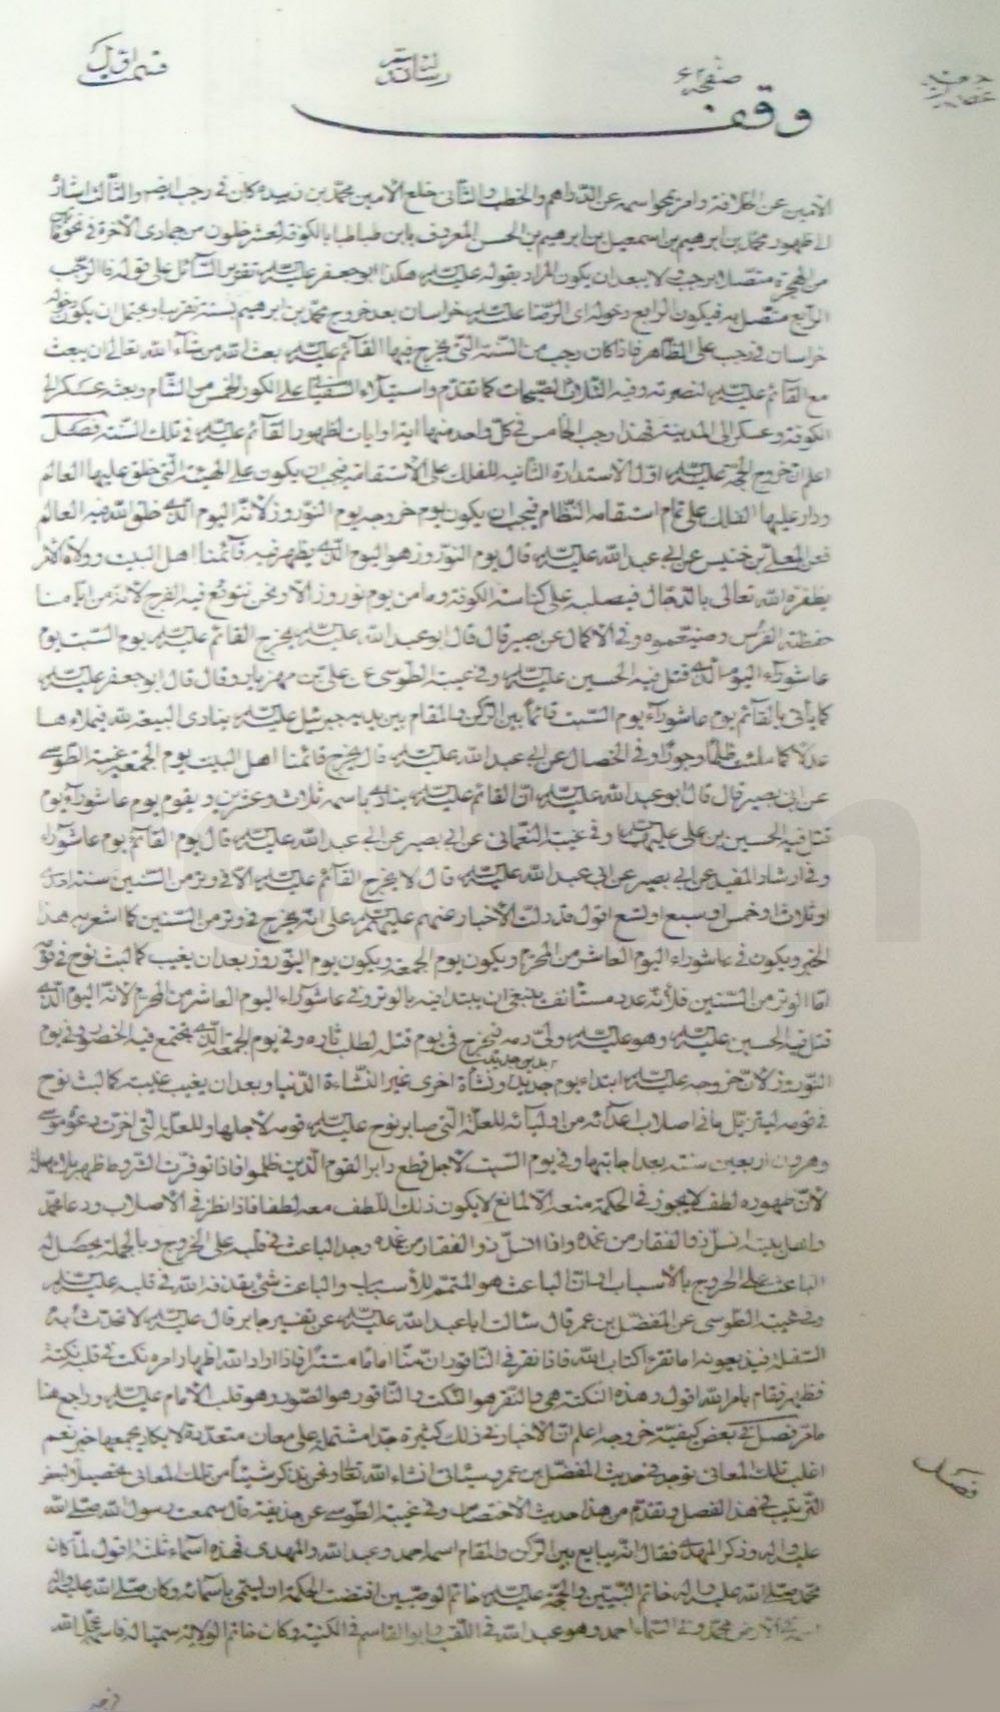 صفحة
وقف
الأمين عن الخلافة وأمر بمحو اسمه عن الدراهم والخطب والثاني خلع الأمين محمد بن زبيدة وكان في رجب أيضا والثالث إشارة
إلى ظهور محمد بن إبراهيم بن اسمعيل بن إبراهيم بن الحسن المعروف بابن طباطبا بالكوفة لعشر خلون من جمادى الآخرة في نحو
من الهجرة متصلا برجب ولا يبعد أن يكون المراد بقوله عليه السلم هكذا أبو جعفر عليه السلم تقرير السائل على قوله فالرجب
الرابع متصل به فيكون الرابع دخوله أي الرضا عليه السلم خراسان بعد خروج محمد بن إبراهيم بسنة تقريبا ويحتمل أن يكون دخوله
خراسان في رجب على الظاهر فإذا كان رجب من السنة التي يخرج فيها القائم عليه السلم بعث الله من شاء الله تعالى أن يبعث
مع القائم عليه السلم لنصرته وفيه الثلاث الصيحات كما تقدم واستيلاء السفياني على الكور الخمس من الشام وبعثه عسكرا إلى
الكوفة وعسكرا إلى المدينة فهذا رجب الخامس في كل واحد منها آية أو آيات لظهور القائم عليه السلم في تلك السنة فصل
اعلم أن خروج الحجة عليه السلم أول الاستدارة الثانية للفلك على الاستقامة فيجب أن يكون على الهيئة التي خلق عليها العالم
ودار عليها الفلك على تمام استقامة النظام فيجب أن يكون يوم خروجه يوم النوروز لأنه اليوم الذي خلق الله فيه العالم
فعن المعلى بن خنيس عن أبي عبد الله عليه السلم قال يوم النوروز هو اليوم الذي يظهر فيه قائمنا أهل البيت وولاة الأمر
يظفره الله تعالى بالدجال فيصلبه على كناسة الكوفة وما من يوم نوروز إلا ونحن نتوقع فيه الفرج لأنه من أيامنا
حفظته الفرس وضيعتموه وفي الإكمال عن أبي بصير قال قال أبو عبد الله عليه السلم يخرج القائم عليه السلم يوم السبت يوم
عاشوراء اليوم الذي قتل فيه الحسين عليه السلم وفي غيبة الطوسي عن علي بن مهزيار وقال قال أبو جعفر عليه السلم
كأني بالقائم يوم عاشوراء يوم السبت قائما بين الركن والمقام بين يديه جبرئيل عليه السلم ينادي البيعة لله فيملاءها
عدلا كما ملئت ظلما وجورا وفي الخصال عن أبي عبد الله عليه السلم قال يخرج قائمنا أهل البيت يوم الجمعة غيبة الطوسي
عن أبي بصير قال قال أبو عبد الله عليه السلم إن القائم عليه السلم ينادى باسمه ثلاث وعشرين ويقوم يوم عاشوراء يوم
قتل فيه الحسين بن علي عليهما السلم وفي غيبة النعماني عن أبي بصير عن أبي عبد الله عليه السلم قال يوم القائم يوم عاشوراء
وفي إرشاد المفيد عن أبي بصير عن أبي عبد الله عليه السلم قال لا يخرج القائم عليه السلم إلا في وتر من السنين سنة إحدى
أو ثلاث أو خمس أو سبع أو تسع أقول قد دلت الأخبار عنهم عليهم السلم على أنه يخرج في وتر من السنين كما أشعر به هذا
الخبر ويكون في عاشوراء اليوم العاشر من المحرم ويكون يوم الجمعة ويكون يوم النوروز بعد أن يغيب كما لبث نوح في قومه
أما الوتر من السنين فلأنه عدد مستأنف ينبغي أن يبتدأ فيه بالوتر وفي عاشوراء اليوم العاشر من المحرم لأنه اليوم الذي
قتل فيه الحسين عليه السلم وهو عليه السلم ولي دمه فيخرج في يوم قتل لطلب ثاره وفي يوم الجمعة الذي يجتمع فيه وفي يوم
النوروز لأن خروجه عليه السلم ابتداء يوم جديد ونشأة أخرى غير النشاءة الدنيا وبعد أن يغيب غيبته كما لبث نوح
في قومه ليتزيل ما في أصلاب أعدائه من أوليائه للعلة التي صابر نوح عليه السلم قومه لأجلها وللعلة التي أخرت دعوة موسى
وهرون أربعين سنة بعد إجابتها وفي يوم السبت لأجل قطع دابر القوم الذين ظلموا فإذا توفرت الشروط ظهر بلا مهلة
لأن ظهوره لطف لا يجوز في الحكمة منعه إلا لمانع لا يكون ذلك اللطف معه لطفا فإذا نظر في الأصلاب
انسل ذو الفقار من غمده وإذا انسل ذو الفقار من غمده وجد الباعث في قلبه على الخروج وبالجملة يحصل له
الباعث على الخروج بالأسباب الباعث هو المتمم للأسباب والباعث شيء يقذفه الله في قلبه عليه السلم
وفي غيبة الطوسي عن المفضل بن عمر قال سألت أبا عبد الله عليه السلم عن تفسير جابر قال عليه السلم لا تحدث به
السفلة فيذيعونه أما تقرء كتاب الله فإذا نقر في الناقور إن منا إماما مستترا فإذا أراد الله إظهار أمره نكت في قلبه نكتة
فظهر فقام بأمر الله أقول وهذه النكتة هي النقر هو النكت والناقور هو الصور وهو قلب الإمام عليه السلم وراجع هنا
ما مر فصل في بعض كيفية خروجه اعلم أن الأخبار في ذلك كثيرة جدا مشتملة على معان متعددة لا يكاد يجمعها خبر نعم
أغلب تلك المعاني يوجد في حديث المفضل بن عمر وسيأتي إنشاء الله تعالى ونحن نذكر شيئا من تلك المعاني
الترتيب في هذا الفصل وتقدم من هذا حديث الاختصاص وفي غيبة الطوسي عن حذيفة قال سمعت رسول الله صلى الله
عليه وآله وذكر المهدي فقال إنه يبايع بين الركن والمقام اسمه احمد وعبد الله والمهدي فهذه أسماء ثلثة أقول لما كان
محمد صلى الله عليه وآله خاتم النبيين والحجة عليه السلم خاتم الوصيين اقتضت الحكمة أن يسمى بأسمائه وكان صلى الله عليه وآله
اسمه في الأرض محمد وفي السماء احمد وهو عبد الله في اللقب وأبو القاسم في الكنية وكان خاتم الولاية سميا له
فصل